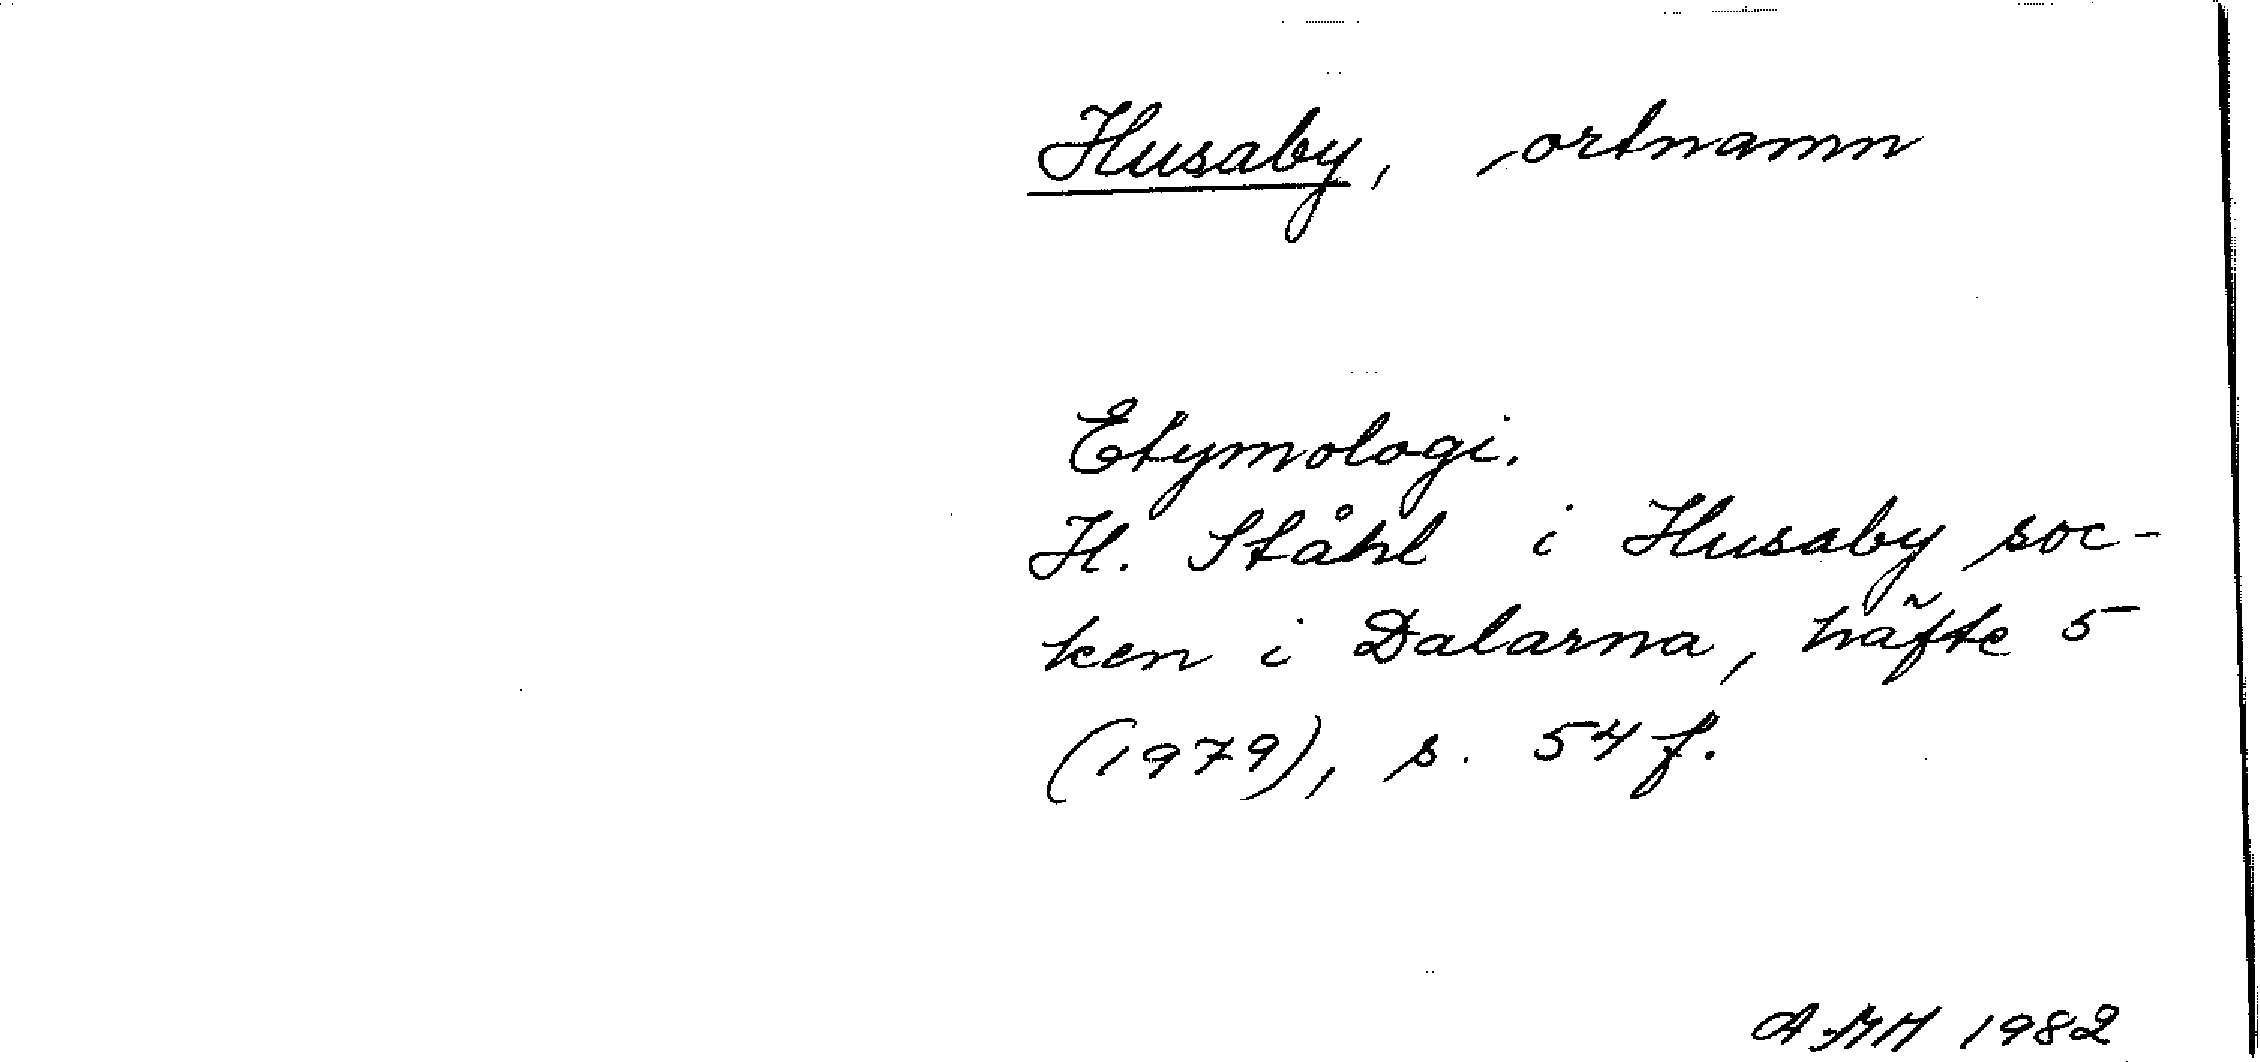 Husaby, ortnamn
Etymologi.
H. Ståhl i Husaby soc-
ken i Dalarna, häfte 5
(1979), s. 54 f.
AMH 1982